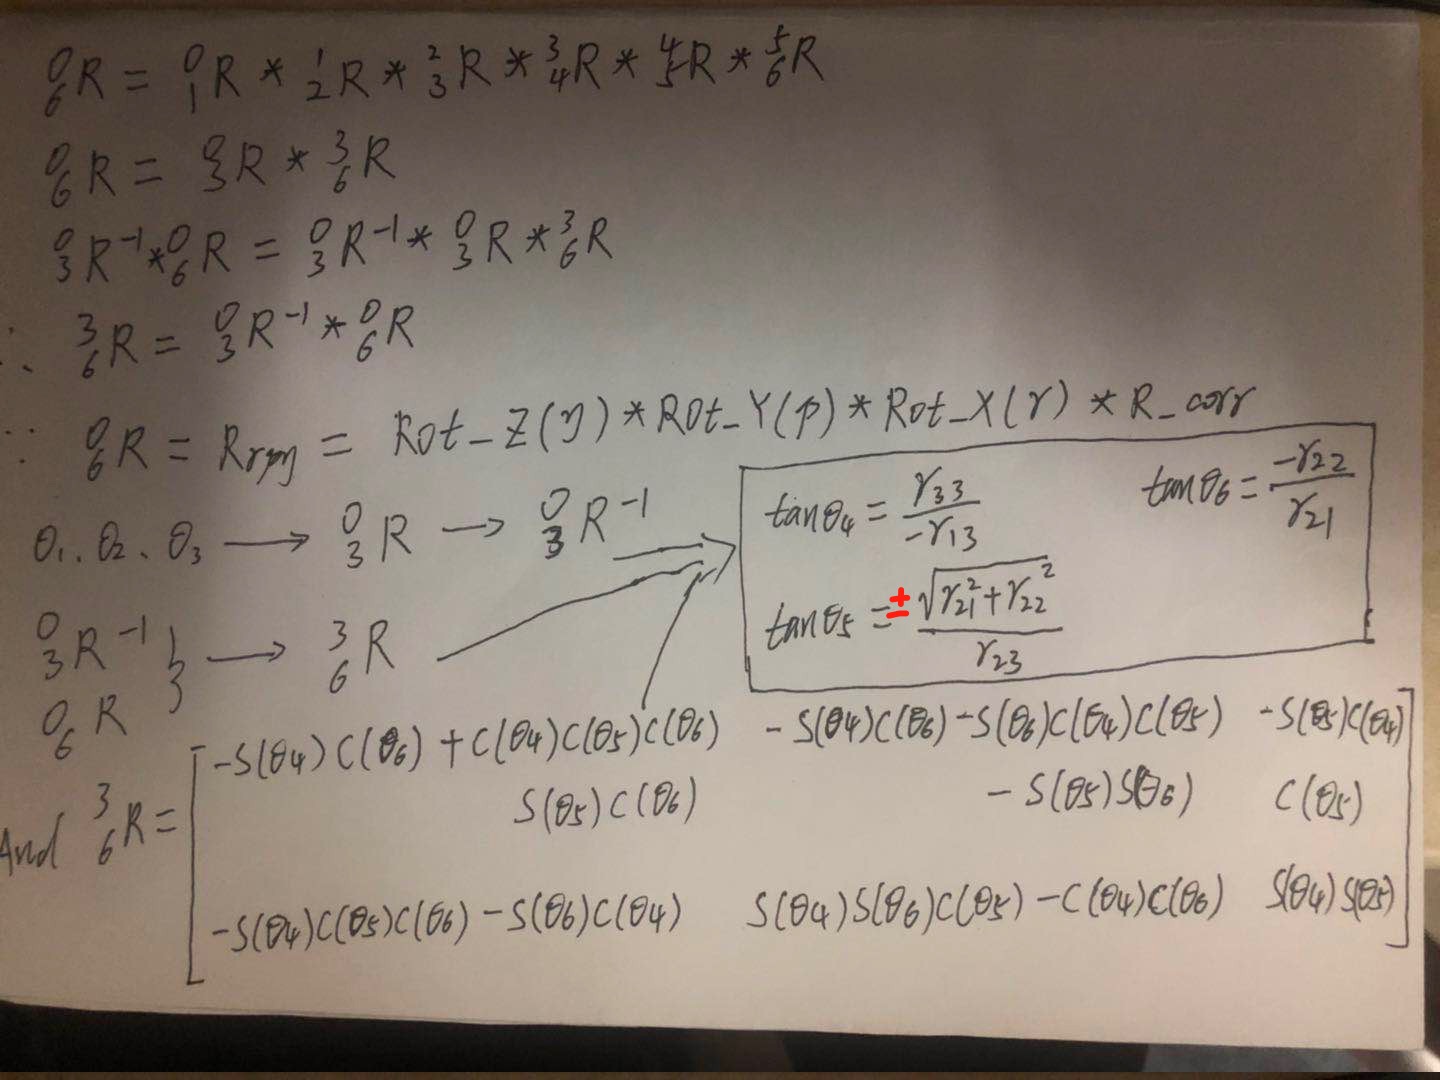 ⁰₆R = ⁰₁R * ¹₂R * ²₃R * ³₄R * ⁴₅R * ⁵₆R
⁰₆R = ⁰₃R * ³₆R
⁰₃R⁻¹ * ⁰₆R = ⁰₃R⁻¹ * ⁰₃R * ³₆R
∴ ³₆R = ⁰₃R⁻¹ * ⁰₆R
∵ ⁰₆R = Rrpy = Rot_Z(y) * ROt_Y(p) * Rot_X(r) * R_corr
tanθ₄ = r₃₃ / -r₁₃
tanθ₆ = -r₂₂ / r₂₁
θ₁、θ₂、θ₃ → ⁰₃R → ⁰₃R⁻¹
tanθ₅ = ± √(r₂₁² + r₂₂²) / r₂₃
⁰₃R⁻¹ } → ³₆R
⁰₆R
And ³₆R =
-S(θ₄)C(θ₆) + C(θ₄)C(θ₅)C(θ₆) -S(θ₄)C(θ₆) - S(θ₆)C(θ₄)C(θ₅) -S(θ₅)C(θ₄)
S(θ₅)C(θ₆) -S(θ₅)S(θ₆) C(θ₅)
-S(θ₄)C(θ₅)C(θ₆) - S(θ₆)C(θ₄) S(θ₄)S(θ₆)C(θ₅) - C(θ₄)C(θ₆) S(θ₄)S(θ₅)